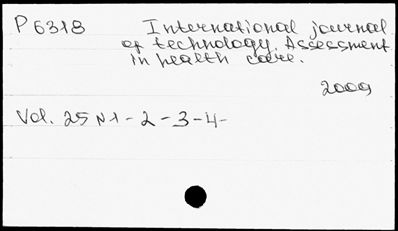 P 6318 International journal
of technology. Assessment
in health care.
2009
Vol. 25 N1-2-3-4-